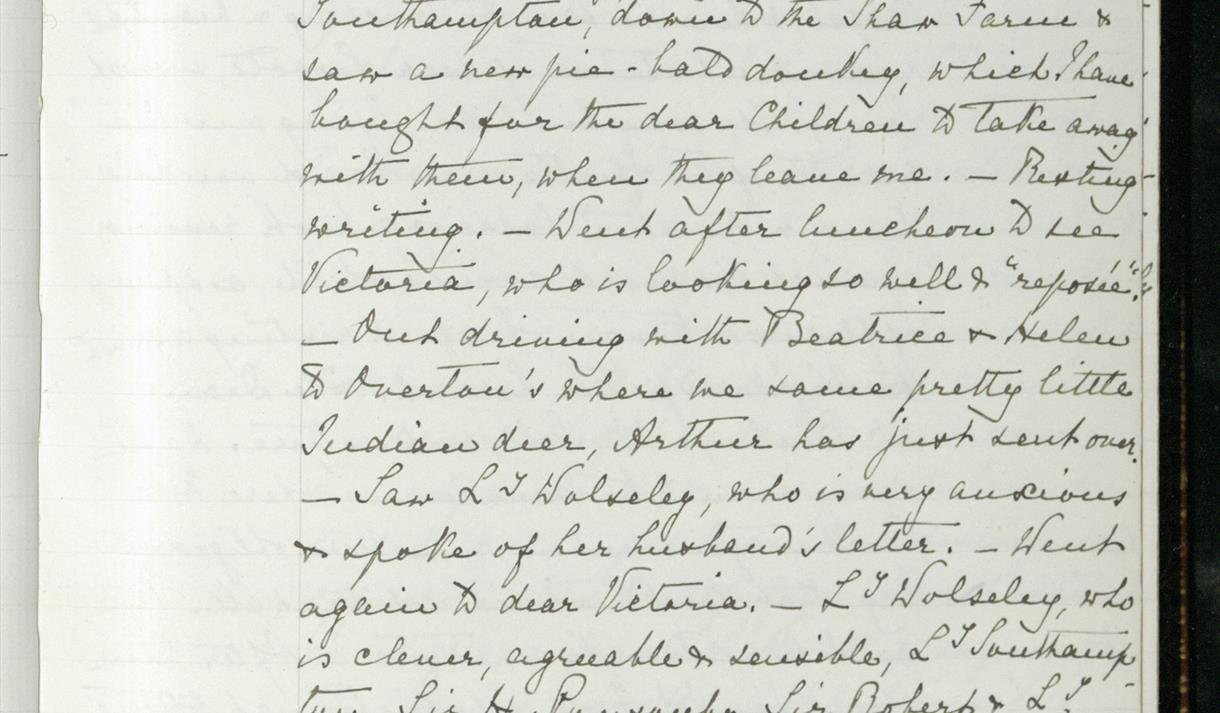 Southampton, down to the Shaw Farm &
saw a new pie-bald donkey, which I have
bought for the dear Children to take away
with them, when they leave me. — Resting
writing. — Went after luncheon to see
Victoria, who is looking so well & "reposée".
— Out driving with Beatrice & Helen
to Overton's where we some pretty little
Indian deer, Arthur has just sent over.
— Saw Ly Wolseley, who is very anxious
& spoke of her husband's letter. — Went
again to dear Victoria. — Ly Wolseley, who
is clever, agreeable & sensible, Ly Southamp-
ton, Sir H. Ponsonby, Sir Robert & Ly